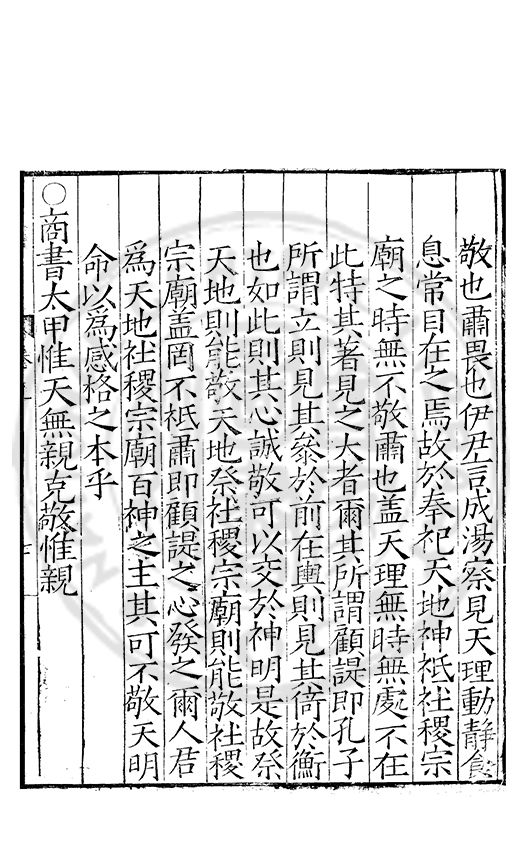 敬也肅畏也伊尹言成湯察見天理動靜食
息常目在之焉故於奉祀天地神祗社稷宗
廟之時無不敬肅也盖天理無時無處不在
此特其著見之大者爾其所謂顧諟即孔子
所謂立則見其參於前在輿則見其倚於衡
也如此則其心誠敬可以交於神明是故祭
天地則能敬天地祭社稷宗廟則能敬社稷
宗廟盖罔不祗肅即顧諟之心發之爾人君
爲天地社稷宗廟百神之主其可不敬天明
命以爲感格之本乎
○商書太甲惟天無親克敬惟親